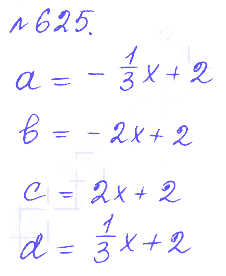 №625.
a = - 1/3 x + 2
b = - 2x + 2
c = 2x + 2
d = 1/3 x + 2